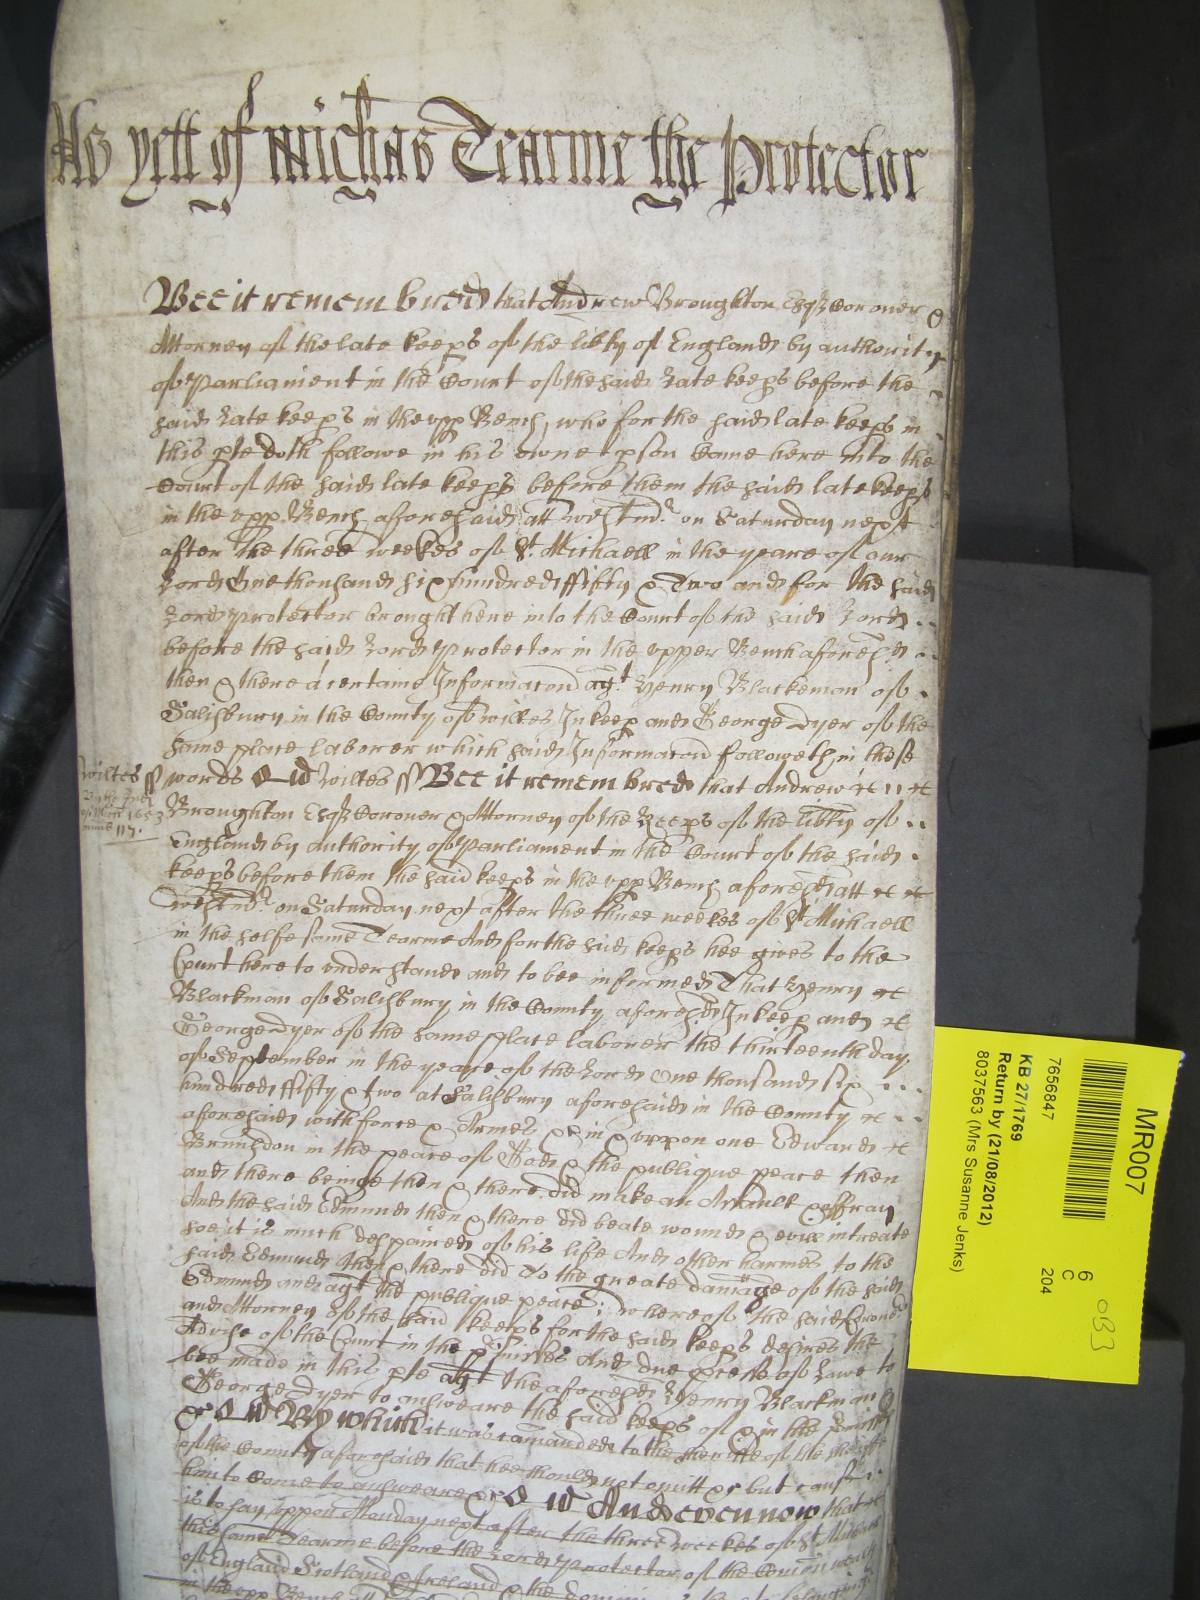 As yett of Michas Tearme the Protector
Bee it remembred that Andrew Broughton Esqr Coroner &
Attorney of the late keeps of the libty of England by authority
of Parliament in the Court of the said Late keeps before the
said Late keeps in the upp Bench, who for the said late keeps in
this pte doth followe in his owne pson Came here into the
Court of the said late keeps before them the said late keeps
in the upp Bench aforesaid att Westmr on Saturday next
after the three weekes of St Michaell in the yeare of our
Lord One thousand six hundred fifty & Two and for the said
Lord Protector brought here into the Court of the said Lord
before the said Lord Protector in the upper Bench aforesd
then & there a certaine Informacon agt Henry Blackeman of
Salisbury in the County of Wiltes Inkeep and George Dyer of the
same place laborer which said Informacon followeth in these
Wiltes ss
words ss Wiltes ss Bee it remembred that Andrew
1653
117.
Broughton Esqr Coroner & Attorney of the Keeps of the libty of
England by authority of Parliament in the Court of the said
keeps before them the said keeps in the upp Bench aforesd att
Westmr on Saturday next after the three weekes of St Michaell
in the selfe same Tearme And for the said keeps hee gives to the
Court here to understand and to bee informed That Henry
Blackman of Salisbury in the County aforesd Inkeep and
George Dyer of the same place laborer the thirteenth day
of September in the yeare of the Lord One thousand six
hundred fifty & two at Salisbury aforesaid in the County
aforesaid with force & Armes &c in & uppon one Edward
Brunsdon in the peace of God & the publique peace then
and there beinge then & there did make an Assault & affray
And the said Edmund then & there did beate wound & evill intreate
soe it is much despaired of his life And other harmes to the
said Edmund then & there did To the greate damage of the said
Edmund and agt the publique peace; whereof the said Coroner
and Attorney of the said keeps for the said keeps desires the
Advise of the Court in the pmisses And due pcess of Lawe to
bee made in this pte agt the aforesd Henry Blackman &
George Dyer to answeare the said keeps of & in the pmisses
&c By which it was comanded to the Sheriffe of the
of the County aforesaid that hee should not omitt &c but cause
him to Come to answeare &c And even now that
is to say uppon Monday next after the three weekes of St Michaell
this same Tearme before the Lord Protector of the Comon wealth
of England Scotland & Ireland & the dominions
in the upp Bench
MR007
7656847
KB 27/1769
Return by (21/08/2012)
8037563 (Mrs Susanne Jenks)
6
C
204
033